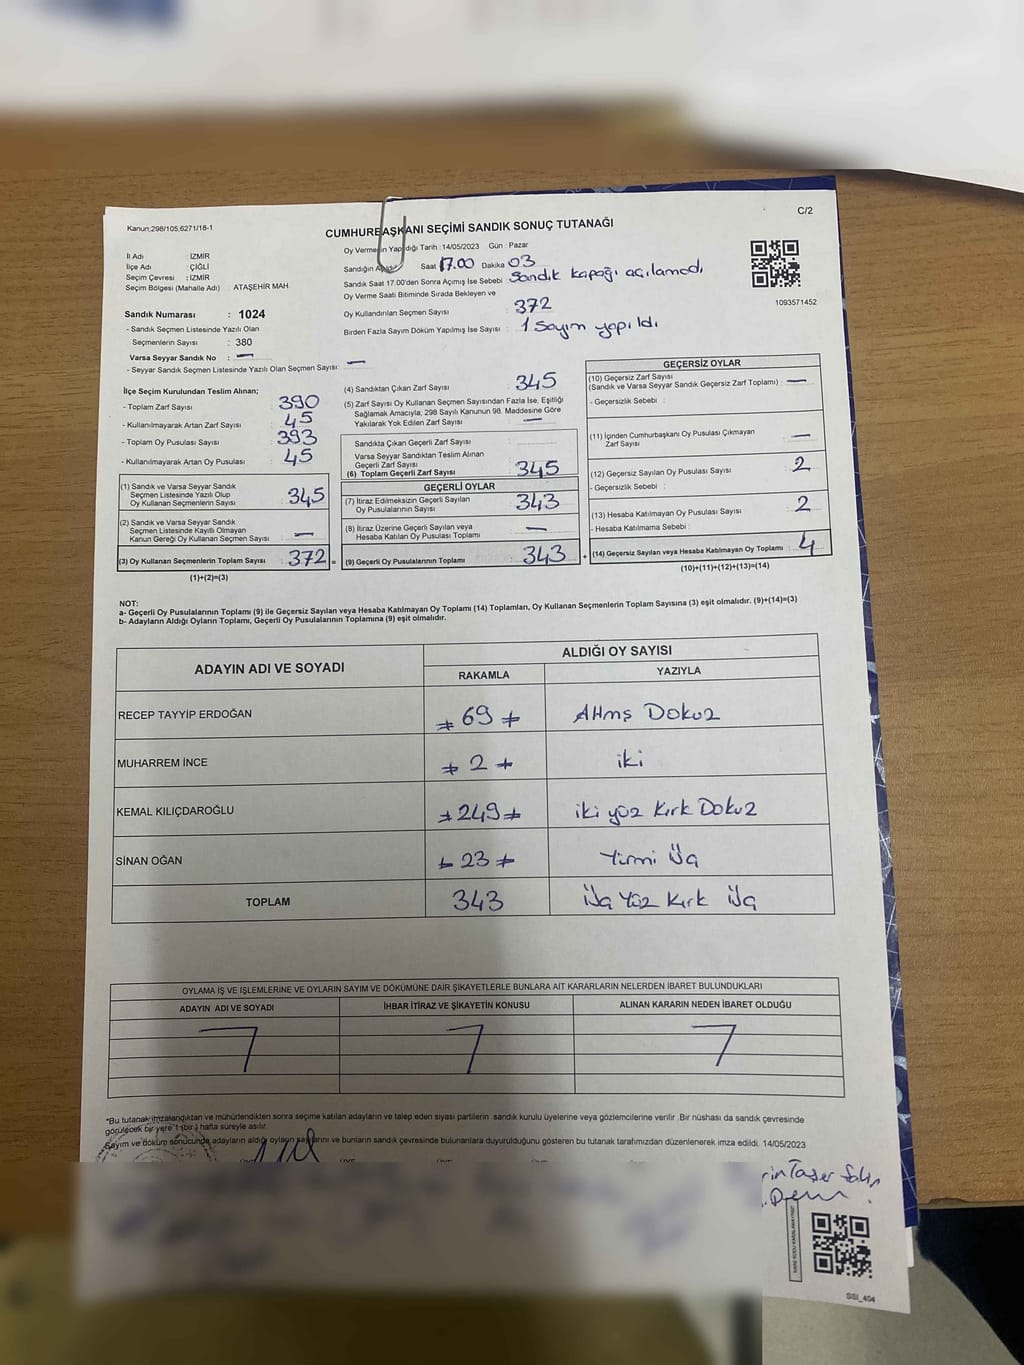 Kanun;298/105;6271/18-1
C/2
CUMHURBAŞKANI SEÇİMİ SANDIK SONUÇ TUTANAĞI
İl Adı : İZMİR
İlçe Adı : ÇİĞLİ
Seçim Çevresi : İZMİR
Seçim Bölgesi (Mahalle Adı) : ATAŞEHİR MAH
Sandık Numarası : 1024
- Sandık Seçmen Listesinde Yazılı Olan
Seçmenlerin Sayısı : 380
Varsa Seyyar Sandık No : —
- Seyyar Sandık Seçmen Listesinde Yazılı Olan Seçmen Sayısı: —
Oy Vermenin Yapıldığı Tarih :14/05/2023 Gün : Pazar
Sandığın Saat 17.00 Dakika 03
Sandık Saat 17.00'den Sonra Açılmış İse Sebebi : Sandık kapağı açılamadı
Oy Verme Saati Bitiminde Sırada Bekleyen ve
Oy Kullandırılan Seçmen Sayısı : 372
Birden Fazla Sayım Döküm Yapılmış İse Sayısı : 1 Sayım yapıldı
1093571452
İlçe Seçim Kurulundan Teslim Alınan;
- Toplam Zarf Sayısı : 390
- Kullanılmayarak Artan Zarf Sayısı : 45
- Toplam Oy Pusulası Sayısı : 393
- Kullanılmayarak Artan Oy Pusulası : 45
(1) Sandık ve Varsa Seyyar Sandık
Seçmen Listesinde Yazılı Olup
Oy Kullanan Seçmenlerin Sayısı : 345
(2) Sandık ve Varsa Seyyar Sandık
Seçmen Listesinde Kayıtlı Olmayan
Kanun Gereği Oy Kullanan Seçmen Sayısı : —
(3) Oy Kullanan Seçmenlerin Toplam Sayısı : 372 =
(1)+(2)=(3)
(4) Sandıktan Çıkan Zarf Sayısı : 345
(5) Zarf Sayısı Oy Kullanan Seçmen Sayısından Fazla İse, Eşitliği
Sağlamak Amacıyla, 298 Sayılı Kanunun 98. Maddesine Göre
Yakılarak Yok Edilen Zarf Sayısı : —
Sandıkta Çıkan Geçerli Zarf Sayısı :
Varsa Seyyar Sandıktan Teslim Alınan
Geçerli Zarf Sayısı :
(6) Toplam Geçerli Zarf Sayısı : 345
GEÇERLİ OYLAR
(7) İtiraz Edilmeksizin Geçerli Sayılan
Oy Pusulalarının Sayısı : 343
(8) İtiraz Üzerine Geçerli Sayılan veya
Hesaba Katılan Oy Pusulası Toplamı : —
(9) Geçerli Oy Pusulalarının Toplamı : 343 +
GEÇERSİZ OYLAR
(10) Geçersiz Zarf Sayısı
(Sandık ve Varsa Seyyar Sandık Geçersiz Zarf Toplamı) : —
- Geçersizlik Sebebi :
(11) İçinden Cumhurbaşkanı Oy Pusulası Çıkmayan
Zarf Sayısı : —
(12) Geçersiz Sayılan Oy Pusulası Sayısı : 2
- Geçersizlik Sebebi :
(13) Hesaba Katılmayan Oy Pusulası Sayısı : 2
- Hesaba Katılmama Sebebi :
(14) Geçersiz Sayılan veya Hesaba Katılmayan Oy Toplamı : 4
(10)+(11)+(12)+(13)=(14)
NOT:
a- Geçerli Oy Pusulalarının Toplamı (9) ile Geçersiz Sayılan veya Hesaba Katılmayan Oy Toplamı (14) Toplamları, Oy Kullanan Seçmenlerin Toplam Sayısına (3) eşit olmalıdır. (9)+(14)=(3)
b- Adayların Aldığı Oyların Toplamı, Geçerli Oy Pusulalarının Toplamına (9) eşit olmalıdır.
ADAYIN ADI VE SOYADI ALDIĞI OY SAYISI
RAKAMLA YAZIYLA
RECEP TAYYİP ERDOĞAN 69 Altmış Dokuz
MUHARREM İNCE 2 iki
KEMAL KILIÇDAROĞLU 249 iki yüz Kırk Dokuz
SİNAN OĞAN 23 Yirmi Üç
TOPLAM 343 Üç Yüz Kırk Üç
OYLAMA İŞ VE İŞLEMLERİNE VE OYLARIN SAYIM VE DÖKÜMÜNE DAİR ŞİKAYETLERLE BUNLARA AİT KARARLARIN NELERDEN İBARET BULUNDUKLARI
ADAYIN ADI VE SOYADI İHBAR İTİRAZ VE ŞİKAYETİN KONUSU ALINAN KARARIN NEDEN İBARET OLDUĞU
*Bu tutanak imzalandıktan ve mühürlendikten sonra seçime katılan adayların ve talep eden siyasi partilerin sandık kurulu üyelerine veya gözlemcilerine verilir .Bir nüshası da sandık çevresinde
görülecek bir yere 1 (bir ) hafta süreyle asılır.
Sayım ve döküm sonucunda adayların aldığı oyların sayılarını ve bunların sandık çevresinde bulunanlara duyurulduğunu gösteren bu tutanak tarafımızdan düzenlenerek imza edildi. 14/05/2023
SSI_404